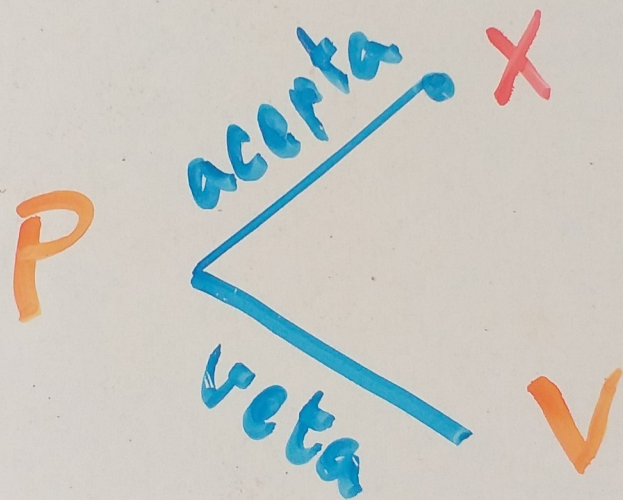 acepta
X
P
veta
V